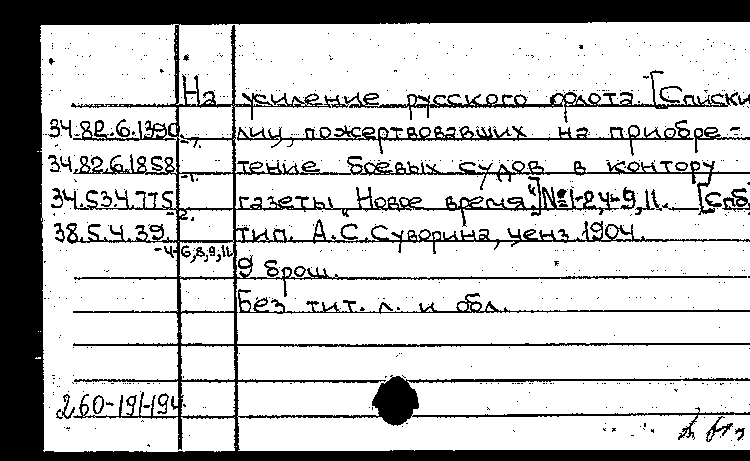 На усиление русского флота. [Списки
34.82.6.1390 лиц, пожертвовавших на приобре-
-7.
34.82.6.1858 тение боевых судов в контору
-1.
34.534.775 газеты „Новое время"] №1-2,4-9,11. [Спб.
-2.
38.5.4.39. тип. А.С.Суворина, ценз. 1904.
-4-6,8,9,11
9 брош.
Без тит. л. и обл.
260-191-194.